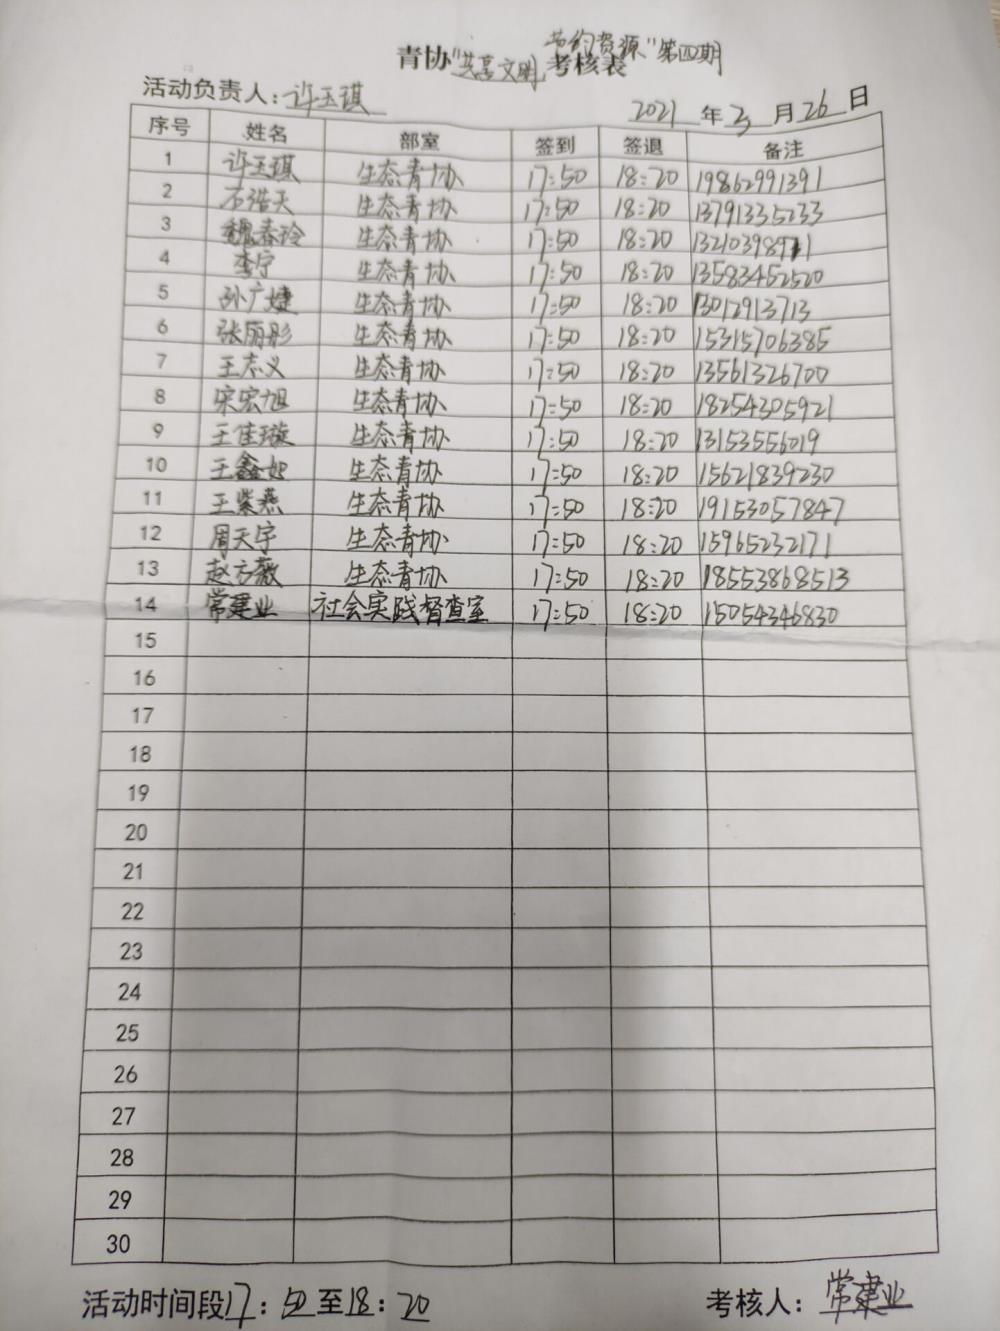 青协"共享文明,节约资源"第四期考核表
活动负责人:许玉琪 2021年3月26日
序号 姓名 部室 签到 签退 备注
1 许玉琪 生态青协 17:50 18:20 19862991391
2 石浩天 生态青协 17:50 18:20 13791335233
3 魏春玲 生态青协 17:50 18:20
4 李宁 生态青协 17:50 18:20 13583452520
5 孙广婕 生态青协 17:50 18:20 13012913713
6 张丽彤 生态青协 17:50 18:20 15315706385
7 王志义 生态青协 17:50 18:20 13561326700
8 宋宏旭 生态青协 17:50 18:20 18254305921
9 王佳璇 生态青协 17:50 18:20 13153556019
10 王鑫如 生态青协 17:50 18:20 15621839230
11 王紫燕 生态青协 17:50 18:20 19153057847
12 周天宇 生态青协 17:50 18:20 15965232171
13 赵方薇 生态青协 17:50 18:20 18553868513
14 常建业 社会实践督查室 17:50 18:20 15054346830
15
16
17
18
19
20
21
22
23
24
25
26
27
28
29
30
活动时间段17:50至18:20 考核人:常建业